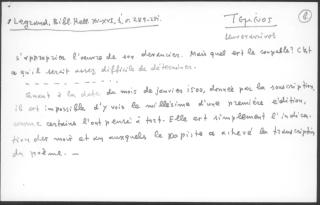 : Legrand, Bibl. Hell. XV-XVI, I, σ. 289-291.
Γεμιστός
6
s'approprier l'œuvre de son devancier. Mais quel est le coupable? C'est
ce qu'il serait assez difficile de déterminer.
- - - - - - - - - -
Quant à la date du mois de janvier 1500, donnée par la souscription,
il est impossible d'y voir le millésime d'une première édition,
comme certains l'ont pensé à tort. Elle est simplement l'indica-
tion des mois et an auxquels le copiste a achevé la transcription
du poème. —